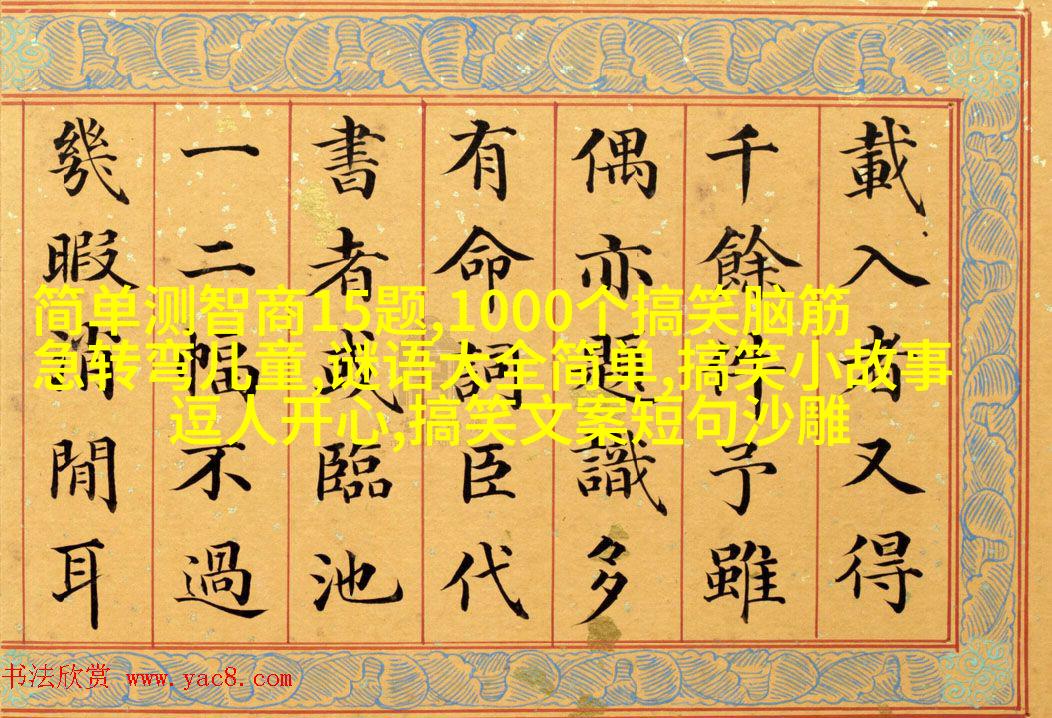 載入者又得
千餘件予雖
偶亦題識多
有命詞臣代
書者或臨池
一二幅不過
幾暇消閒耳
简单测智商15题,1000个搞笑脑筋
急转弯儿童,谜语大全简单,搞笑小故事
逗人开心,搞笑文案短句沙雕
书法欣赏 www.yac8.com